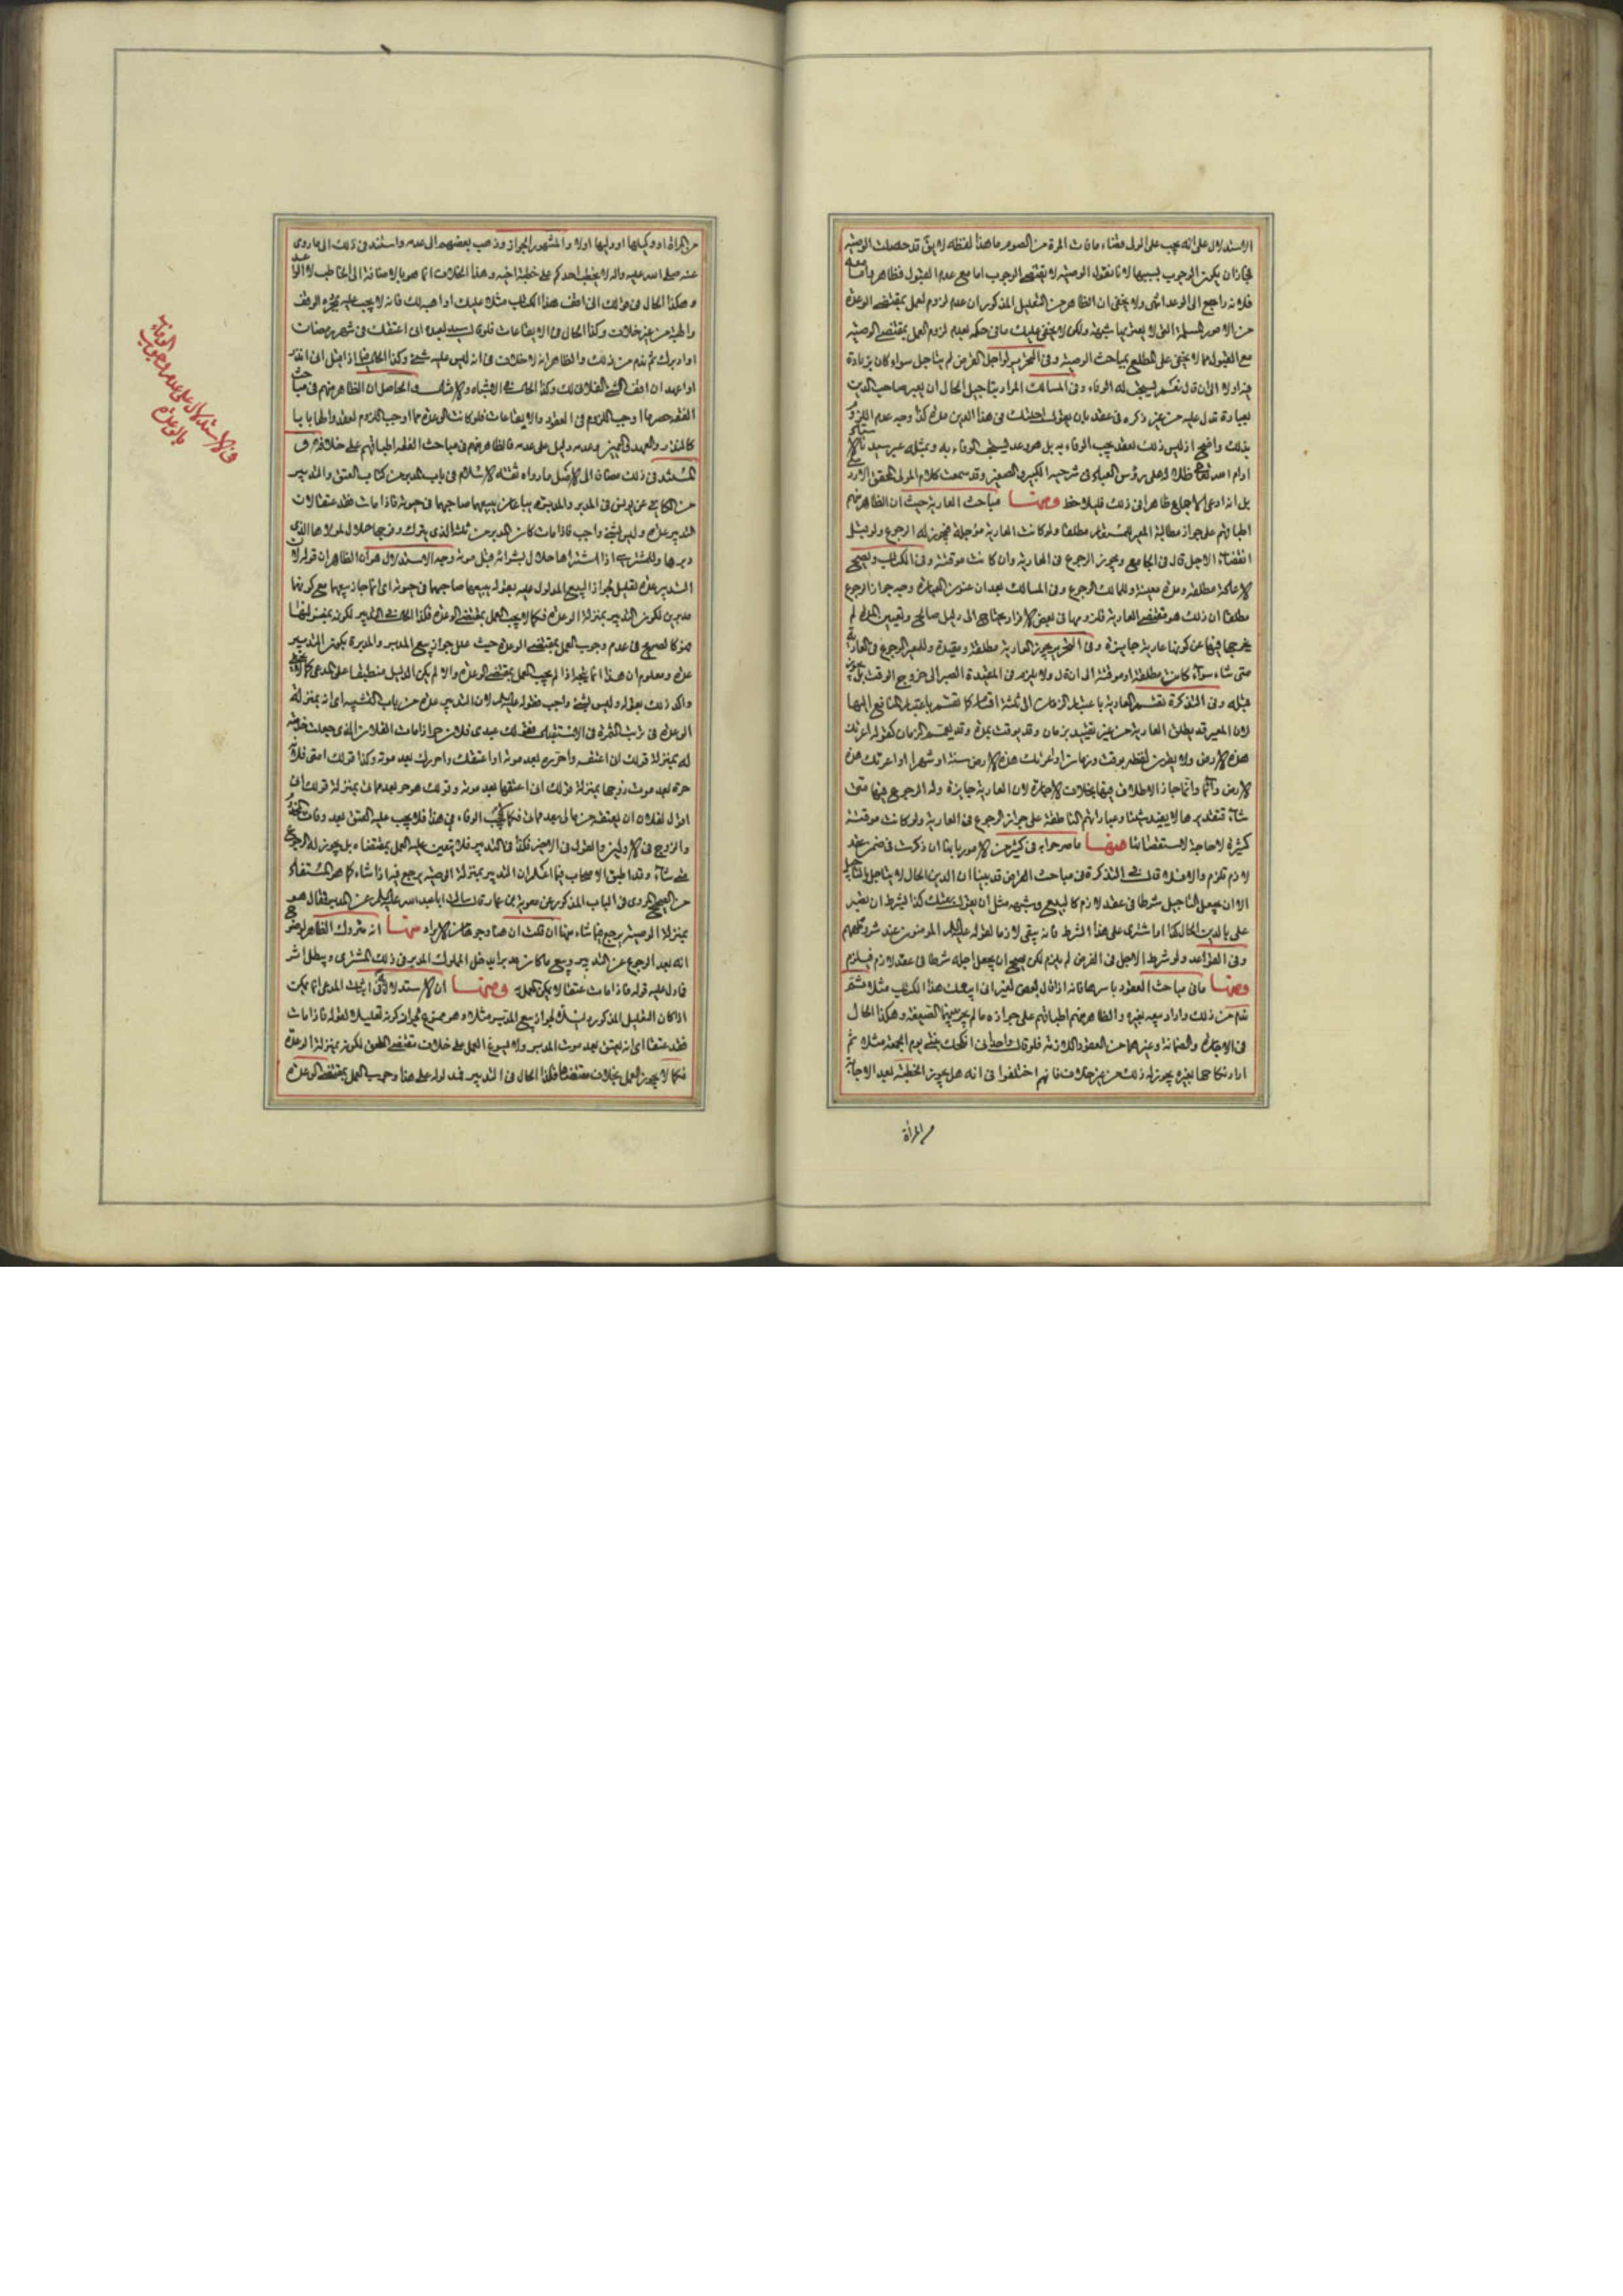 الاستدلال على انه يجب على الولى قضاء ما فات المرة من الصوم ما هذا لفظه لا يق قد حصلت الوصية
فجاز ان يكون الوجوب بسببها لانا نقول الوصية لا تقتضى الوجوب اما مع عدم القبول فظاهر واما معه
فلانه راجع الى الوعد انتهى ولا يخفى ان الظاهر من التعليل المذكور ان عدم لزوم العمل بمقتضى الوعد
من الامور المسلمة التى لا يعتريها شبهة ولكن لا يخفى عليك ما فى حكمه بعدم لزوم العمل بمقتضى الوصية
مع القبول مما لا يخفى على المطلع بمباحث الوصية وفى التحرير لو اجل القرض لم يتاجل سواء كان بزيادة
فيه او لا الى ان قال نعم يستحب له الوفاء وفى المسالك المراد بتاجيل الحال ان يعبر صاحب الدين
بعبارة تدل عليه من غير ذكره فى عقد بان يقول اجلتك فى هذا الدين مدة كذا وجه عدم اللزوم
بذلك واضح اذ ليس ذلك بعقد يجب الوفاء به بل هو وعد يستحب الوفاء به وبمثله عبر سيدنا الاستاد
ادام الله تعالى ظلاله على رؤس العباد فى شرحيه الكبير والصغير وقد سمعت كلام المولى المحقق الاردبيلى
بل انه ادعى الاجماع ظاهرا فى ذلك فليلاحظ ومنها مباحث العارية حيث ان الظاهر منهم
اطباقهم على جواز مطالبة المعير المستعار مطلقا ولو كانت العارية مؤجلة فيجوز له الرجوع ولو قبل
انقضاء الاجل قال فى الجامع ويجوز الرجوع فى العارية وان كانت موقتة وفى الكتاب ويصح
الاعارة مطلقة ومدة معينة وللمالك الرجوع وفى المسالك بعد ان عنون العبارة وجه جواز الرجوع
مطلقا ان ذلك هو مقتضى العارية فلزومها فى بعض الافراد يحتاج الى دليل صالح وتعيين المدة لم
يخرجها فيها عن كونها عارية جايزة وفى التحرير يجوز العارية مطلقة ومقيدة وللمعير الرجوع فى العارية
متى شاء سواء كانت مطلقة او موقتة الى ان قال ولا يلزمه فى المقيدة الصبر الى خروج الوقت بل يجوز
قبله وفى التذكرة تقسم العارية باعتبار الزمان الى ثلثة اقسام كما تقسم باعتبار المنافع اليها
لان المعير قد يطلق العارية من غير تقييد بزمان وقد يوقت بمدة وقد يعمم الزمان كقوله اعرتك
هذه الارض ولا يقرن لفظه بوقت وزمان او اعرتك هذه الارض سنة او شهرا او اعرتك هذه
الارض دائما وانما جاز الاطلاق فيها بخلاف الاجارة لان العارية جايزة وله الرجوع فيها متى
شاء فتقديرها لا يفيد شيئا وعباراتهم الناطقة على جواز الرجوع فى العارية ولو كانت موقتة
كثيرة لا حاجة لاستقصائنا منها ما صرحوا به فى كثير من الامور بانها ان ذكرت فى ضمن عقد
لازم تلزم والا فلا قال فى التذكرة فى مباحث القرض قد بينا ان الدين الحال لا يتاجل بالتاجيل
الا ان يجعل التاجيل شرطا فى عقد لازم كالبيع وشبهه مثل ان يقول بعتك كذا بشرط ان تصبر
على بالدين الحال كذا او اشترى على هذا الشرط فانه يبقى لازما لقوله عليه السلم المؤمنون عند شروطهم
وفى القواعد ولو شرط الاجل فى القرض لم يلزم لكن يصح ان يجعل اجله شرطا فى عقد لازم فيلزم
ومنها ما فى مباحث العقود باسرها فانه اذا قال بعض لغير انى ابيعك هذا الكتاب مثلا ثم
ندم من ذلك واراد بيعه لغيره والظاهر منهم اطباقهم على جوازه ما لم يجر بينهما الصيغة وهكذا الحال
فى الاجارة والضمانة وغيرهما من العقود اللازمة فلو قال واحد انى انكحك بنتى يوم الجمعة مثلا ثم
اراد نكاحها لغيره يجوز له ذلك من غير خلاف فانهم اختلفوا فى انه هل يجوز الخطبة بعد الاجابة
من المرأة
من المرأة او وكيلها او وليها اولا والمشهور الجواز وذهب بعضهم الى عدمه واستند فى ذلك الى ما روى
عنه صلى الله عليه واله لا يخطب احدكم على خطبة اخيه وهذا الخلاف انما هو بالاضافة الى الخاطب لا الواعد
وهكذا الحال فى قولك انى اقف هذا الكتاب مثلا عليك او اهبه لك فانه لا يجب عليه بمجرده الوقف
والهبة من غير خلاف وكذا الحال فى الايقاعات فلو قال سيد لعبده انى اعتقك فى شهر رمضان
او ادبرك ثم ندم من ذلك والظاهر انه لا خلاف فى انه ليس عليه شىء وكذا الحال فيما اذا قيل انى انذر
او اعهد ان اقف الشىء الفلانى لك وكذا الحال فى الاشباه والامثال والحاصل ان الظاهر منهم فى مباحث
الفقه حصر ما اوجب اللزوم فى العقود والايقاعات فلو كانت الوعدة مما اوجب اللزوم لعقدوا لها بابا
كالنذر والعهد واليمين وعدمه دليل على عدمه فالظاهر منهم فى مباحث الفقه اطباقهم على خلافه
المستند فى ذلك مضافا الى الاصل ما رواه ثقة الاسلام فى باب المدبر من كتاب العتق والتدبير
من الكافى عن يونس فى المدبر والمدبرة يباعان يبيعهما صاحبهما فى حيوته فاذا مات فقد عتقا لان
التدبير عدة وليس بشىء واجب فاذا مات كان المدبر من ثلثه الذى يترك وفرجها حلال لمولاها الذى
دبرها وللمشترى اذا اشتراها حلال بشرائه قبل موته وجه الاستدلال هو ان الظاهر ان قوله لان
التدبير عدة تعليل لجواز البيع المدلول عليه بقوله يبيعهما صاحبهما فى حيوته اى انما جاز بيعهما مع كونهما
مدبرين لكون التدبير بمنزلة الوعدة فكما لا يجب العمل بمقتضى الوعدة فكذا الحال فى التدبير لكونه بمنزلتها
فهو كالصريح فى عدم وجوب العمل بمقتضى الوعدة حيث علل جواز بيع المدبر والمدبرة بكون التدبير
عدة ومعلوم ان هذا انما يتم اذا لم يجب العمل بمقتضى الوعدة والا لم يكن الدليل منطبقا على المدعى كما لا يخفى
واكد ذلك بقوله وليس بشىء واجب فقوله عليه السلم لان التدبير عدة من باب التشبيه اى انه بمنزلة
له بمنزلة قولك انى اعتقه واحرره بعد موته او اعتقك واحررك بعد موته وكذا قولك امتى فلانة
حرة بعد موت زوجها بمنزلة قولك انى اعتقها بعد موته وقولك هو حر بعد مماتى بمنزلة قولك انى
اقول لفلان ان يعتقه من مالى بعد مماتى فكما لا يجب الوفاء فى هذا فلا يجب عليه العتق بعد وفات
والزوج فى الاولين والقول فى الاخير فكذا فى التدبير فلا يتعين عليه العمل بمقتضاه بل يجوز له الرجوع
متى شاء وقد اطبق الاصحاب فيما اعلم ان التدبير بمنزلة الوصية يرجع فيه اذا شاء كما هو المستفاد
من الصحيح المروى فى الباب المذكور عن معوية بن عمار قال سالت ابا عبد الله عليه السلم عن المدبر فقال هو
بمنزلة الوصية يرجع فيما شاء منها ان قلت ان هنا وجوها من الايراد منها انه متروك الظاهر
انه بعد الرجوع عن التدبير وبيع ما كان مدبرا يدخل المملوك المدبر فى ذلك المشترى ويبطل اثر
فادل عليه قوله فاذا مات عتقا لا يمكن العمل به ومنها ان الاستدلال فى اثبات المدعى انما يمكن
اذا كان التعليل المذكور دليلا لجواز بيع المدبر مثلا وهو ممنوع لجواز كونه تعليلا لقوله فاذا مات
فقد عتقا اى انه يعتق بعد موت المدبر ولا يسوغ العمل على خلاف مقتضى العتق لكونه بمنزلة الوعدة
فكما لا يجوز العمل بخلاف مقتضاها فكذا الحال فى التدبير فيدلو له على هذا وجوب العمل بمقتضى الوعدة
فى الاستدلال على عدم وجوب
الوفاء
بالوعدة